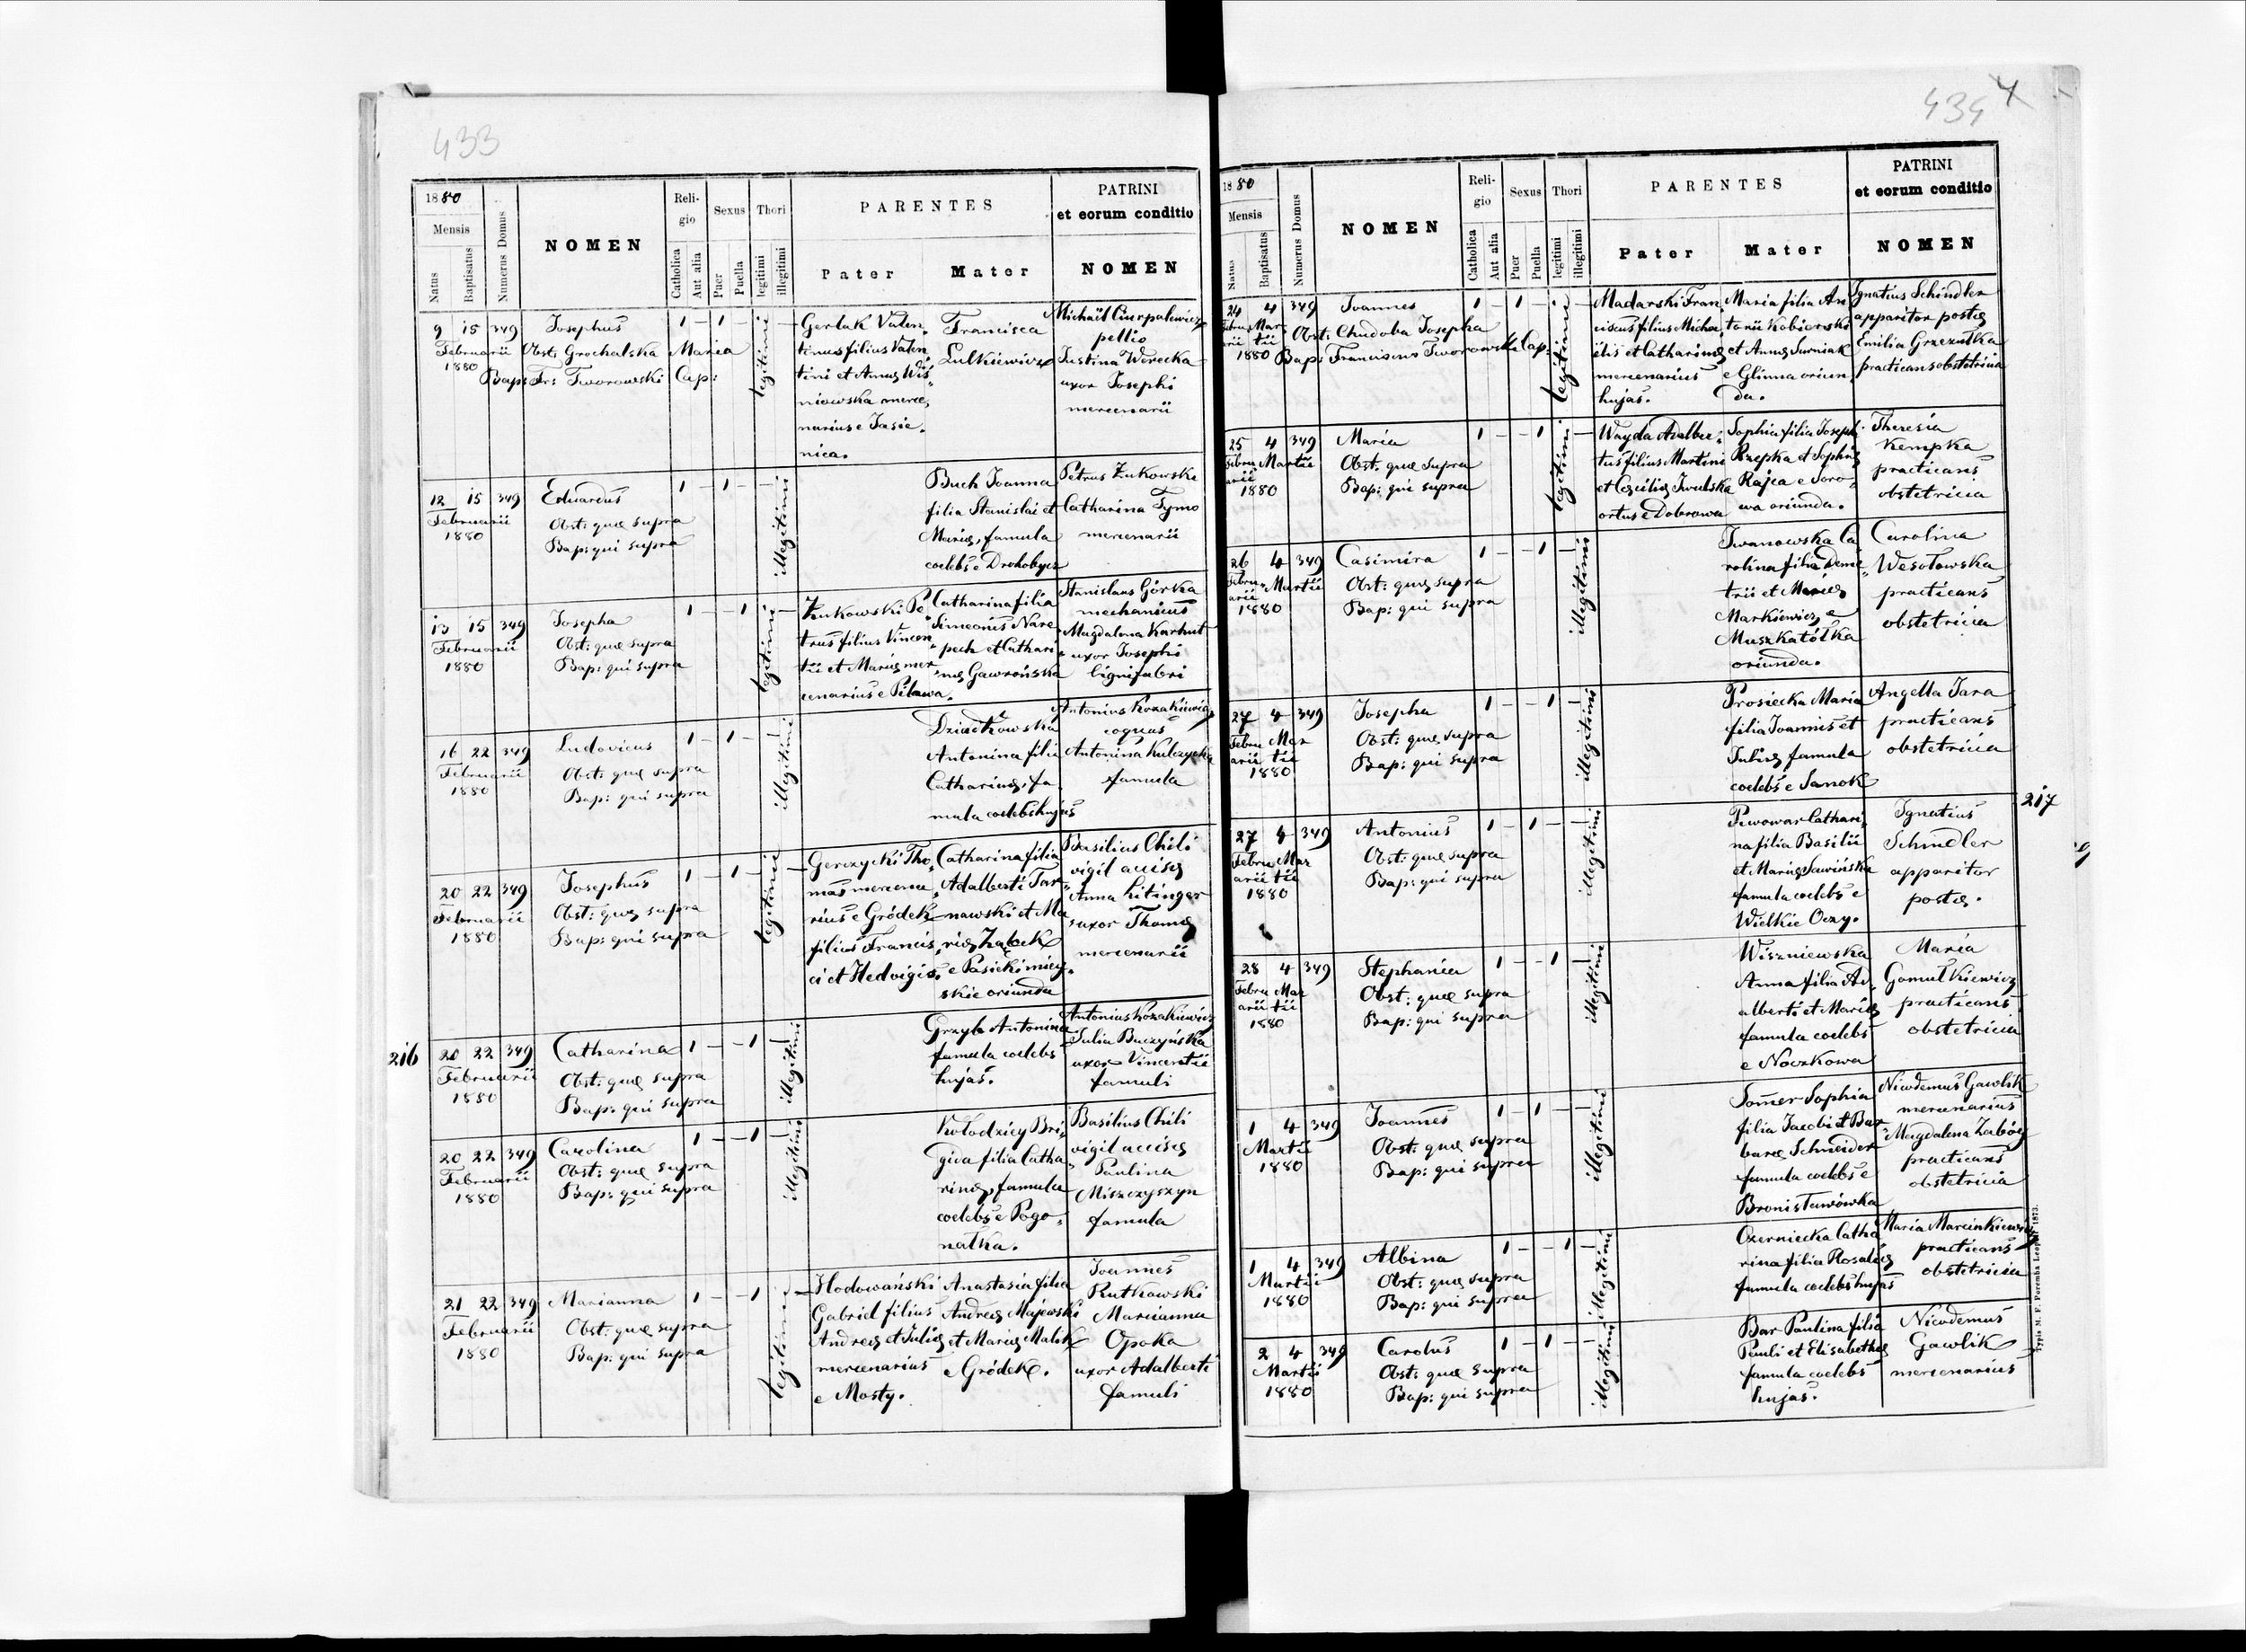 433
1880
Mensis
Natus
Baptisatus
Numerus Domus
NOMEN
Reli-
gio
Catholica
Aut alia
Sexus
Puer
Puella
Thori
legitimi
illegitimi
PARENTES
Pater
Mater
PATRINI
et eorum conditio
NOMEN
9 15 349
Februarii
1880
Josephus
Obst: Grochalska Maria
Bap: Fr: Tworowski Cap:
1 - 1 -
legitimi
Gerlak Valen
tinus filius Valen
tini et Annæ Wiś
niowska merce
narius e Jasie
nica.
Francisca
Lulkiewicz
Michaël Cierpalewicz
pellio
Justina Worecka
uxor Josephi
mercenarii
12 15 349
Februarii
1880
Eduardus
Obst: quæ supra
Bap: qui supra
1 - 1 -
illegitimi
Buch Joanna
filia Stanislai et
Mariæ, famula
coelebs e Drohobycz
Petrus Żukowski
Catharina Tymo
mercenarii
13 15 349
Februarii
1880
Josepha
Obst: quæ supra
Bap: qui supra
1 - - 1
legitimi
Żukowski Pe
trus filius Vincen
tii et Mariæ mer
cenarius e Pilawa.
Catharina filia
Simeonis Nare
pech et Cathari
næ Gawrońska
Stanislaus Górka
mechanicus
Magdalena Karhut
uxor Josephi
lignifabri
16 22 349
Februarii
1880
Ludovicus
Obst: quæ supra
Bap: qui supra
1 - 1 -
illegitimi
Dziadkowska
Antonina filia
Catharinæ, fa
mula coelebs hujas
Antonius Kozakiewicz
coquus
Antonina Kulczycka
famula
20 22 349
Februarii
1880
Josephus
Obst: quæ supra
Bap: qui supra
1 - 1 -
legitimi
Gerczycki Tho
mas mercena
rius e Gródek
filius Francis
ci et Hedvigis.
Catharina filia
Adalberti Tar
nawski et Ma
riæ Ząbek
e Pasieki miey
skie oriunda
Basilius Chili
vigil accisæ
Anna Litinger
uxor Thomæ
mercenarii
216
20 22 349
Februarii
1880
Catharina
Obst: quæ supra
Bap: qui supra
1 - - 1
illegitimi
Grzyb Antonina
famula coelebs
hujas.
Antonius Kozakiewicz
Julia Buczyńska
uxor Vincentii
famuli
20 22 349
Februarii
1880
Carolina
Obst: quæ supra
Bap: qui supra
1 - - 1
illegitimi
Kołodziey Bri
gida filia Catha
rinæ, famula
coelebs e Pogo
natka.
Basilius Chili
vigil accisæ
Paulina
Miszczyszyn
famula
21 22 349
Februarii
1880
Marianna
Obst: quæ supra
Bap: qui supra
1 - - 1
legitimi
Hodowański
Gabriel filius
Andreæ et Juliæ
mercenarius
e Mosty.
Anastasia filia
Andreæ Majewski
et Mariæ Malik
e Gródek.
Joannes
Rutkowski
Marianna
Opoka
uxor Adalberti
famuli
434
1880
Mensis
Natus
Baptisatus
Numerus Domus
NOMEN
Reli-
gio
Catholica
Aut alia
Sexus
Puer
Puella
Thori
legitimi
illegitimi
PARENTES
Pater
Mater
PATRINI
et eorum conditio
NOMEN
24 4 349
Febru Mar
arii tii
1880
Joannes
Obst: Chudoba Josepha
Bap: Franciscus Tworowski Cap:
1 - 1 -
legitimi
Madarski Fran
ciscus filius Micha
ëlis et Catharinæ
mercenarius
hujas.
Maria filia An
tonii Kobierski
et Annæ Surniak
e Glinna oriun
da.
Ignatius Schindler
apparitor postæ
Emilia Grzezułka
practicans obstetricia
25 4 349
Februarii Martii
1880
Maria
Obst: quæ supra
Bap: qui supra
1 - - 1
legitimi
Wayda Adalber
tus filius Martini
et Cæciliæ Iwulska
ortus e Dobrowa
Sophia filia Josephi
Rzepka et Sophiæ
Rajca e Soro
wa oriunda.
Theresia
Kempka
practicans
obstetricia
26 4 349
Februarii Martii
1880
Casimira
Obst: quæ supra
Bap: qui supra
1 - - 1
illegitimi
Iwanowska Ca
rolina filia Deme
trii et Mariæ
Markiewicz e
Muszkatółka
oriunda.
Carolina
Wesołowska
practicans
obstetricia
27 4 349
Febru Mar
arii tii
1880
Josepha
Obst: quæ supra
Bap: qui supra
1 - - 1
illegitimi
Prosiecka Maria
filia Joannis et
Juliæ famula
coelebs e Sanok
Angella Jara
practicans
obstetricia
217
27 4 349
Febru Mar
arii tii
1880
Antonius
Obst: quæ supra
Bap: qui supra
1 - 1 -
illegitimi
Piwowar Cathari
na filia Basilii
et Mariæ Sawińska
famula coelebs e
Wielkie Oczy.
Ignatius
Schindler
apparitor
postæ.
28 4 349
Febru Mar
arii tii
1880
Stephania
Obst: quæ supra
Bap: qui supra
1 - - 1
illegitimi
Wiszniewska
Anna filia Ad
alberti et Mariæ
famula coelebs
e Noczkowa
Maria
Gamułkiewicz
practicans
obstetricia
1 4 349
Martii
1880
Joannes
Obst: quæ supra
Bap: qui supra
1 - 1 -
illegitimi
Somer Sophia
filia Jacobi et Bar
baræ Schneider
famula coelebs e
Bronisławówka
Nicodemus Gawlik
mercenarius
Magdalena Zabóy
practicans
obstetricia
1 4 349
Martii
1880
Albina
Obst: quæ supra
Bap: qui supra
1 - - 1
illegitimi
Czerniecka Catha
rina filia Rosaliæ
famula coelebs hujas
Maria Marcinkiewicz
practicans
obstetricia
2 4 349
Martii
1880
Carolus
Obst: quæ supra
Bap: qui supra
1 - 1 -
illegitimi
Bar Paulina filia
Pauli et Elisabethæ
famula coelebs
hujas.
Nicodemus
Gawlik
mercenarius
Typis M. F. Poremba Leop. 1873.